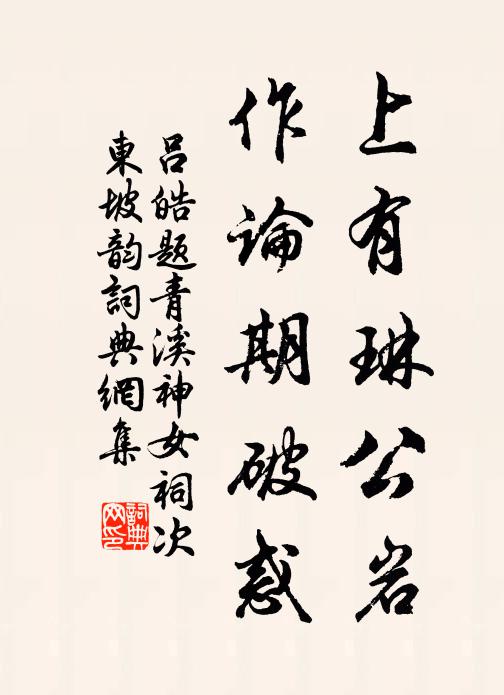 上有琳公岩
作論期破惑
吕皓题青溪神女祠次
東坡韵詞典網集
詞典网印